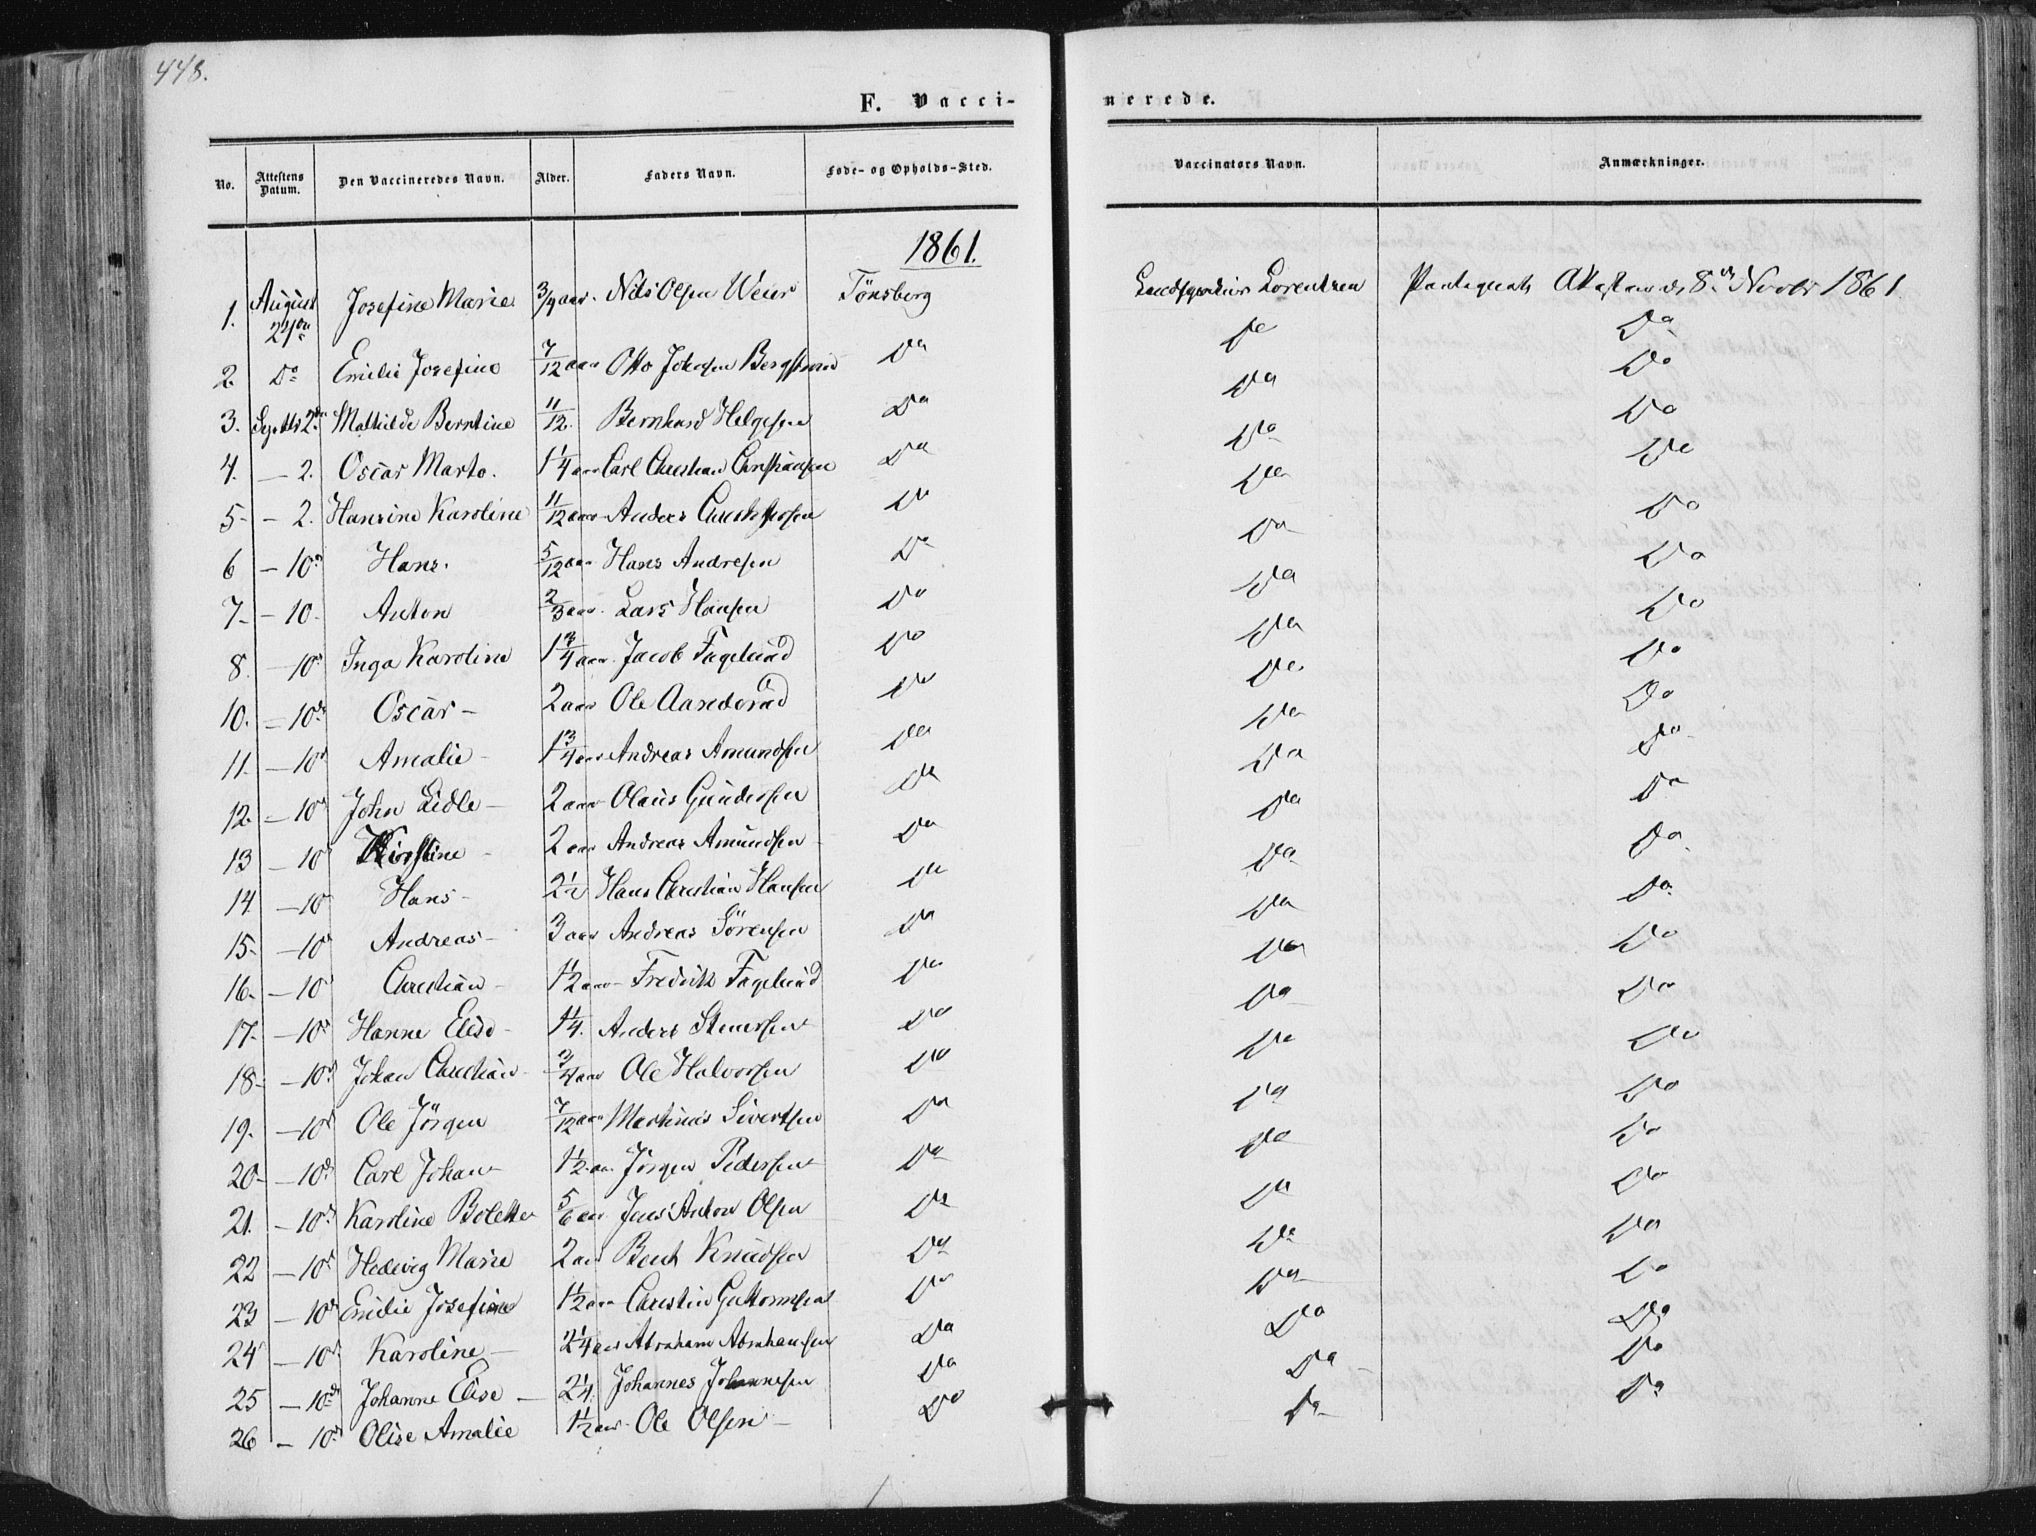 448.
F. Vacci-
nerede.
No. Attestens Datum. Den Vaccineredes Navn. Alder. Faders Navn. Føde- og Opholds-Sted. Vaccinators Navn. Anmærkninger.
1861.
1. August 24de Josefine Marie 3/4 aar. Nils Olsen Weier Tönsberg Lorentzen Attester d. 8de Novbr 1861.
2. Do Emilie Josefine 7/12 aar Otto Johnsen Do Do Do
3. Septbr 2den Mathilde Berntine 11/12. Bernhard Helgesen Do Do Do
4. — 2. Oscar Marto. 1 1/4 aar Carl Christian Christiansen Do Do Do
5 - — 2. Hansine Karoline 11/12 aar Anders Christophersen Do Do Do
6 — 10d Hans. 5/12 aar Hans Andresen Do Do Do
7 - — 10. Anton 2/3 aar. Lars Hansen Do Do Do
8. — 10d Inga Karoline 1 3/4 aar Jacob Do Do Do
10. — 10de Oscar — 2 aar Ole Do Do Do
11. — 10d Amalie — 1 3/4 aar Andreas Amundsen Do Do Do
12. — 10d John — 2 aar Olaus Gundersen Do Do Do
13 — 10d Kirstine — 2 aar Andreas Amundsen Do Do Do
14 — 10d Hans — 2 1/2 Hans Christian Hansen Do Do Do
15. — 10d Andreas — 3 aar Andreas Sörensen Do Do Do
16. — 10d Christian — 1 1/2 aar Fredrik Do Do Do
17. — 10d Hanne Elise — 1 1/4. Anders Do Do Do
18 - — 10d Johan Christian 3/4 aar Ole Halvorsen Do Do Do
19. — 10d Ole Jörgen 7/12 aar Martinus Sivertsen Do Do Do
20 - — 10d Carl Johan 1 1/2 aar Jörgen Pedersen Do Do Do
21. — 10d Karoline Bolette 5/6 aar Jens Anton Olsen Do Do Do
22 — 10d Hedevig Marie 2 aar Bent Knudsen Do Do Do
23 — 10d Emilie Josefine 1 1/2 aar Guttormsen Do Do Do
24 — 10d Karoline — 2 1/4 aar Abraham Abrahamsen Do Do Do
25 — 10de Johanne Elise — 2 1/4. Johannes Johannesen Do Do Do
26 — 10d Olise Amalie 1 1/2 aar. Ole Olsen — Do Do Do